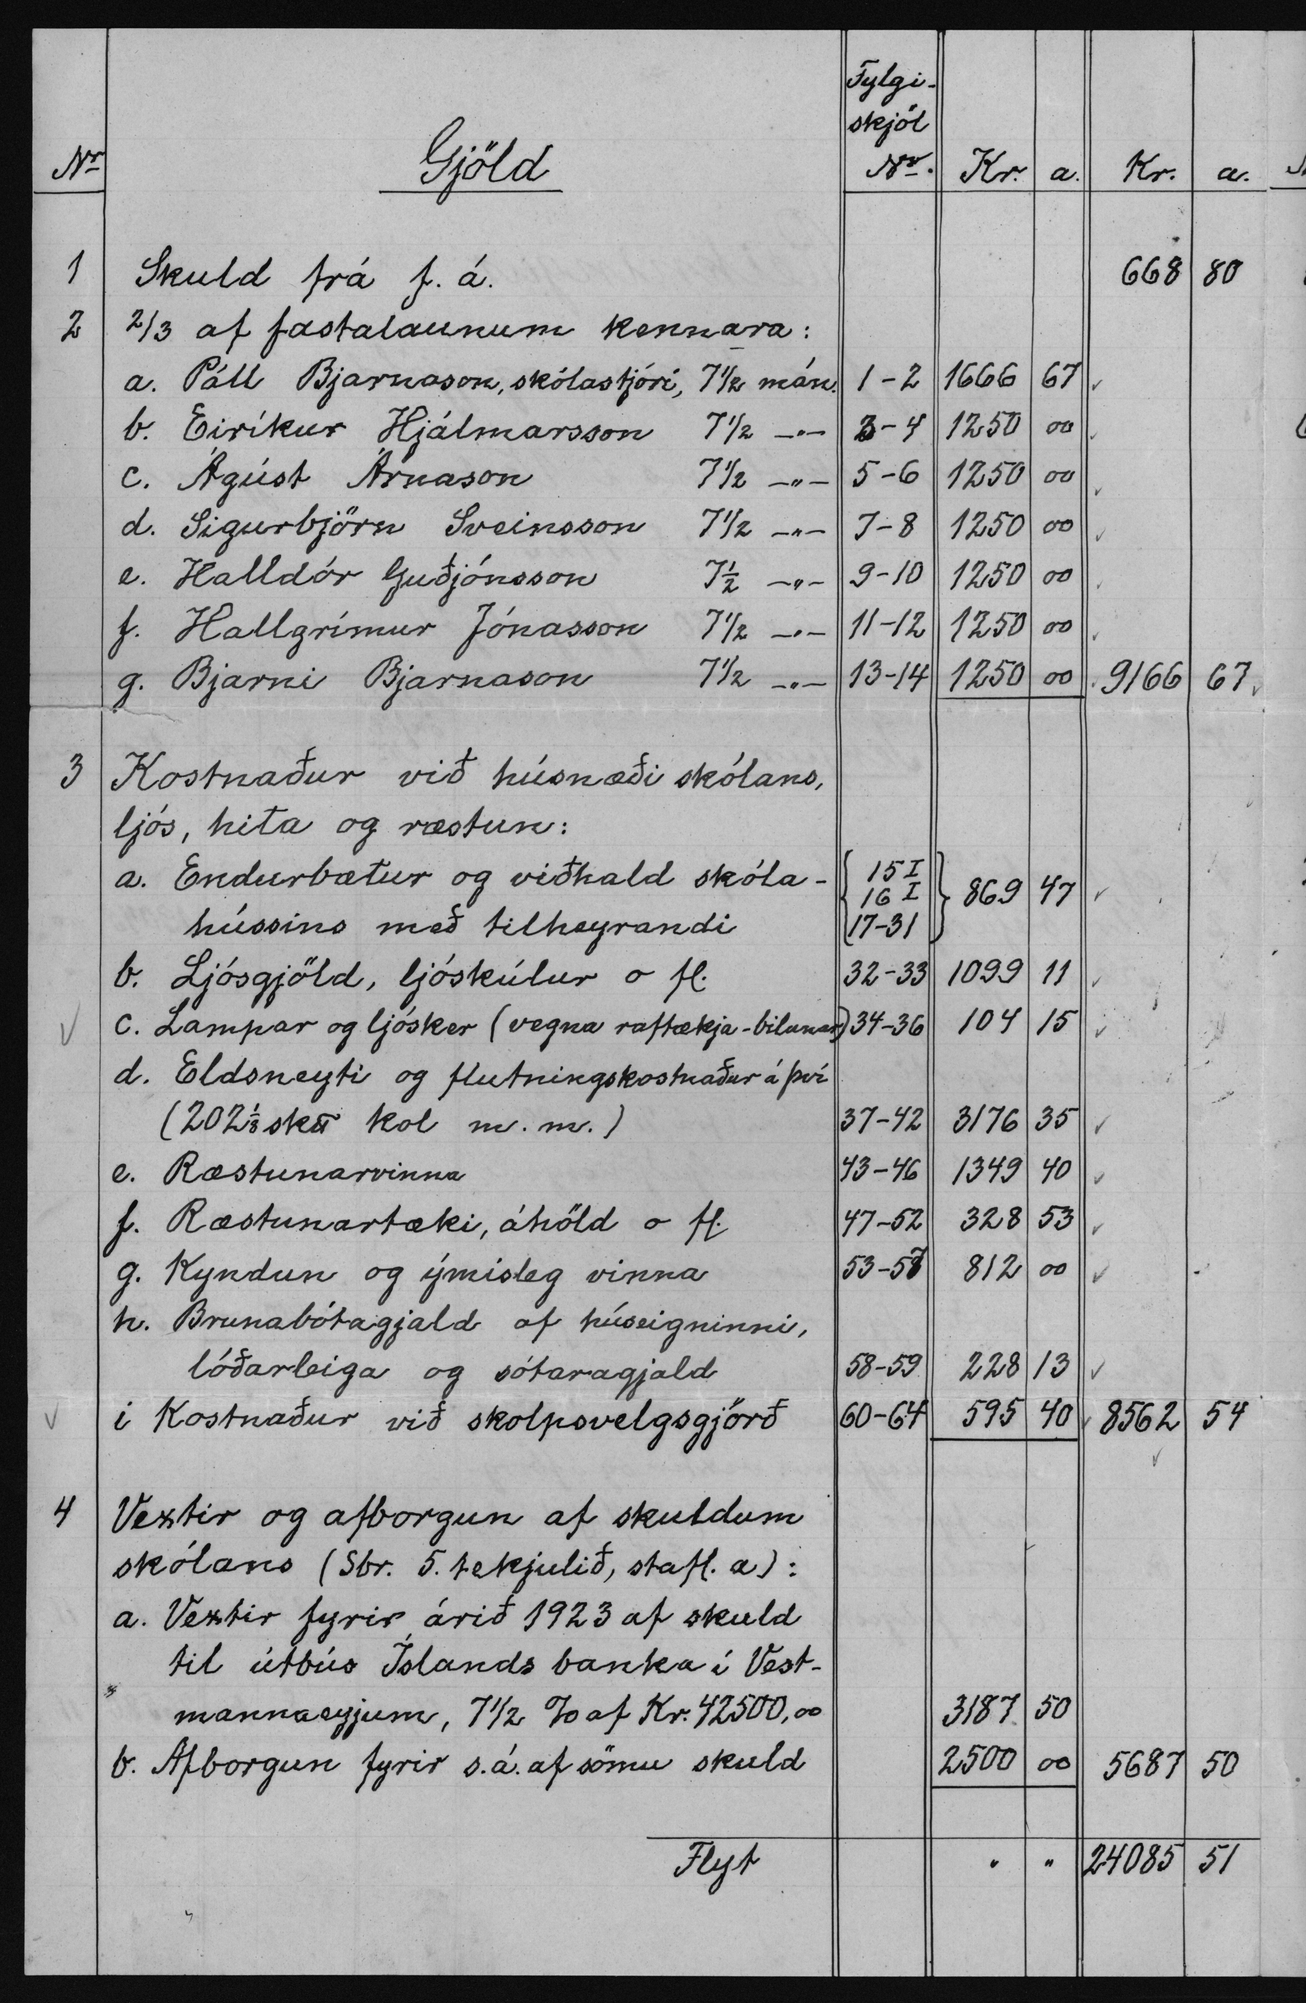 Nr Gjöld Fylgi-skjöl Nr. Kr. a. Kr. a.
1 Skuld frá f. á. 668 80
2 2/3 af fastalaunum kennara:
a. Páll Bjarnason, skólastjóri, 7 1/2 mán. 1-2 1666 67
b. Eiríkur Hjálmarsson 7 1/2 -"- 3-4 1250 00
c. Ágúst Árnason 7 1/2 -"- 5-6 1250 00
d. Sigurbjörn Sveinsson 7 1/2 -"- 7-8 1250 00
e. Halldór Guðjónsson 7 1/2 -"- 9-10 1250 00
f. Hallgrímur Jónasson 7 1/2 -"- 11-12 1250 00
g. Bjarni Bjarnason 7 1/2 -"- 13-14 1250 00 9166 67
3 Kostnaður við húsnæði skólans,
ljós, hita og ræstun:
a. Endurbætur og viðhald skóla- { 15 I
16 I } 869 47
hússins með tilheyrandi 17-31
b. Ljósgjöld, ljóskúlur o fl. 32-33 1099 11
c. Lampar og ljósker (vegna raftækja-bilunar) 34-36 104 15
d. Eldsneyti og flutningskostnaður á því
(202 1/8 sk℔ kol m. m.) 37-42 3176 35
e. Ræstunarvinna 43-46 1349 40
f. Ræstunartæki, áhöld o fl. 47-52 328 53
g. Kyndun og ýmisleg vinna 53-57 812 00
h. Brunabótagjald af húseigninni,
lóðarleiga og sótaragjald 58-59 228 13
i Kostnaður við skolpsvelgsgjörð 60-64 595 40 8562 54
4 Vextir og afborgun af skuldum
skólans (Sbr. 5. tekjulið, stafl. a):
a. Vextir fyrir árið 1923 af skuld
til útbús Íslands banka í Vest-
mannaeyjum, 7 1/2 % af Kr. 42500,00 3187 50
b. Afborgun fyrir s.á. af sömu skuld 2500 00 5687 50
Flyt " " 24085 51